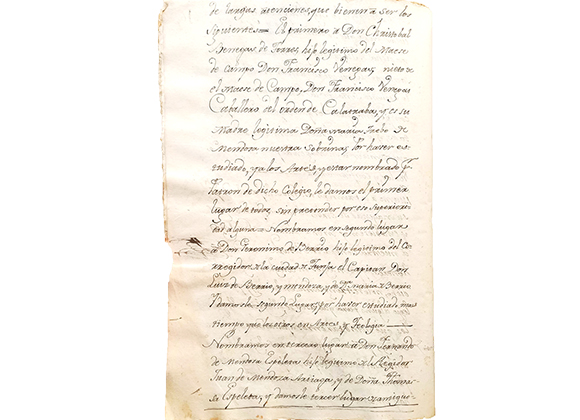 de largas atenciones, que bienen a ser los
siguientes = El primero a Don Christobal
Benegas de Torres, hijo legitimo del Maese
de Campo Don Francisco Venegas, nieto de
el maese de Campo, Don Francisco Venegas
Caballero del orden de Calatraba, y es su
Madre legitima Doña Maria Trebo de
Mendosa nuestra sobrina, Por haver es-
tudiado, ya los Artes, y estar nombrado P.
Patron de dicho Colegio, le damos el primer
lugar de todos, sin pretender por eso superiori-
dad alguna = Nombramos en segundo lugar
a Don Geronimo de Berrio hijo legitimo del Co-
rregidor de la ciudad de Tunja el Capitan Don
Luis de Berrio, y mendosa, y de Maria de Berrio
Y damosle segundo lugar, por haver estudiado mas
tiempo que los otros en Artes, y Teologia
Nombramos en tercero lugar a Don Fernando
de Mendosa Espeleta hijo legitimo de el Regidor
Juan de Mendoza Artiaga, y de Doña Thoma-
sa Espeleta, y damosle tercer lugar